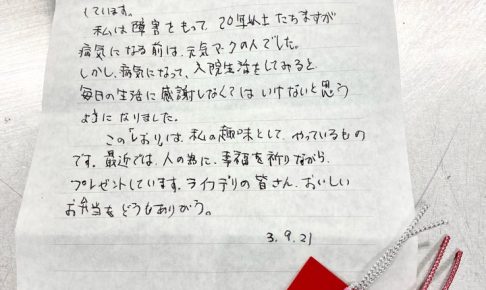 しています。
私は障害をもって、20年以上たちますが
病気になる前は、元気マークの人でした。
しかし、病気になって、入院生活をしてみると、
毎日の生活に感謝しなくてはいけないと思う
ようになりました。
この「しおり」は、私の趣味として、やっているもの
です。最近では、人の為に、幸福を祈りながら、
プレゼントしています。ライフデリの皆さん、おいしい
お弁当をどうもありがとう。
3.9.21